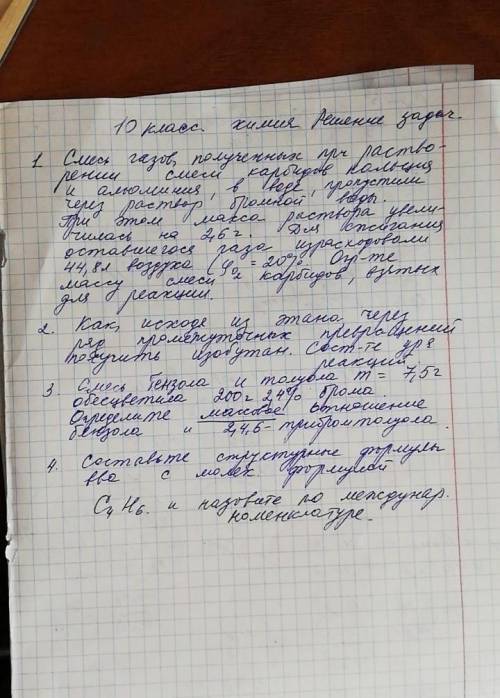 10 класс. химия Решение задач.
1. Смесь газов, полученных при раство-
рении смеси карбидов кальция
и алюминия, в воде, пропустили
через раствор бромной воды.
При этом масса раствора увели-
чилась на 2,6 г. Для сжигания
оставшегося газа израсходовали
44,8 л воздуха (φO2 = 20%. Опр-те
массу смеси карбидов, взятых
для реакции.
2. Как, исходя из этана, через
ряд промежуточных превращений
получить изобутан. Сост-те ур-я
реакций
3 Смесь бензола и толуола m = 7,5 г
обесцветила 200 г 24% брома
Определите массовое отношение
бензола и 2,4,6-трибромтолуола.
4. Составьте структурные формулы
вва с молек. формулой
C4H6. и назовите по междунар.
номенклатуре.